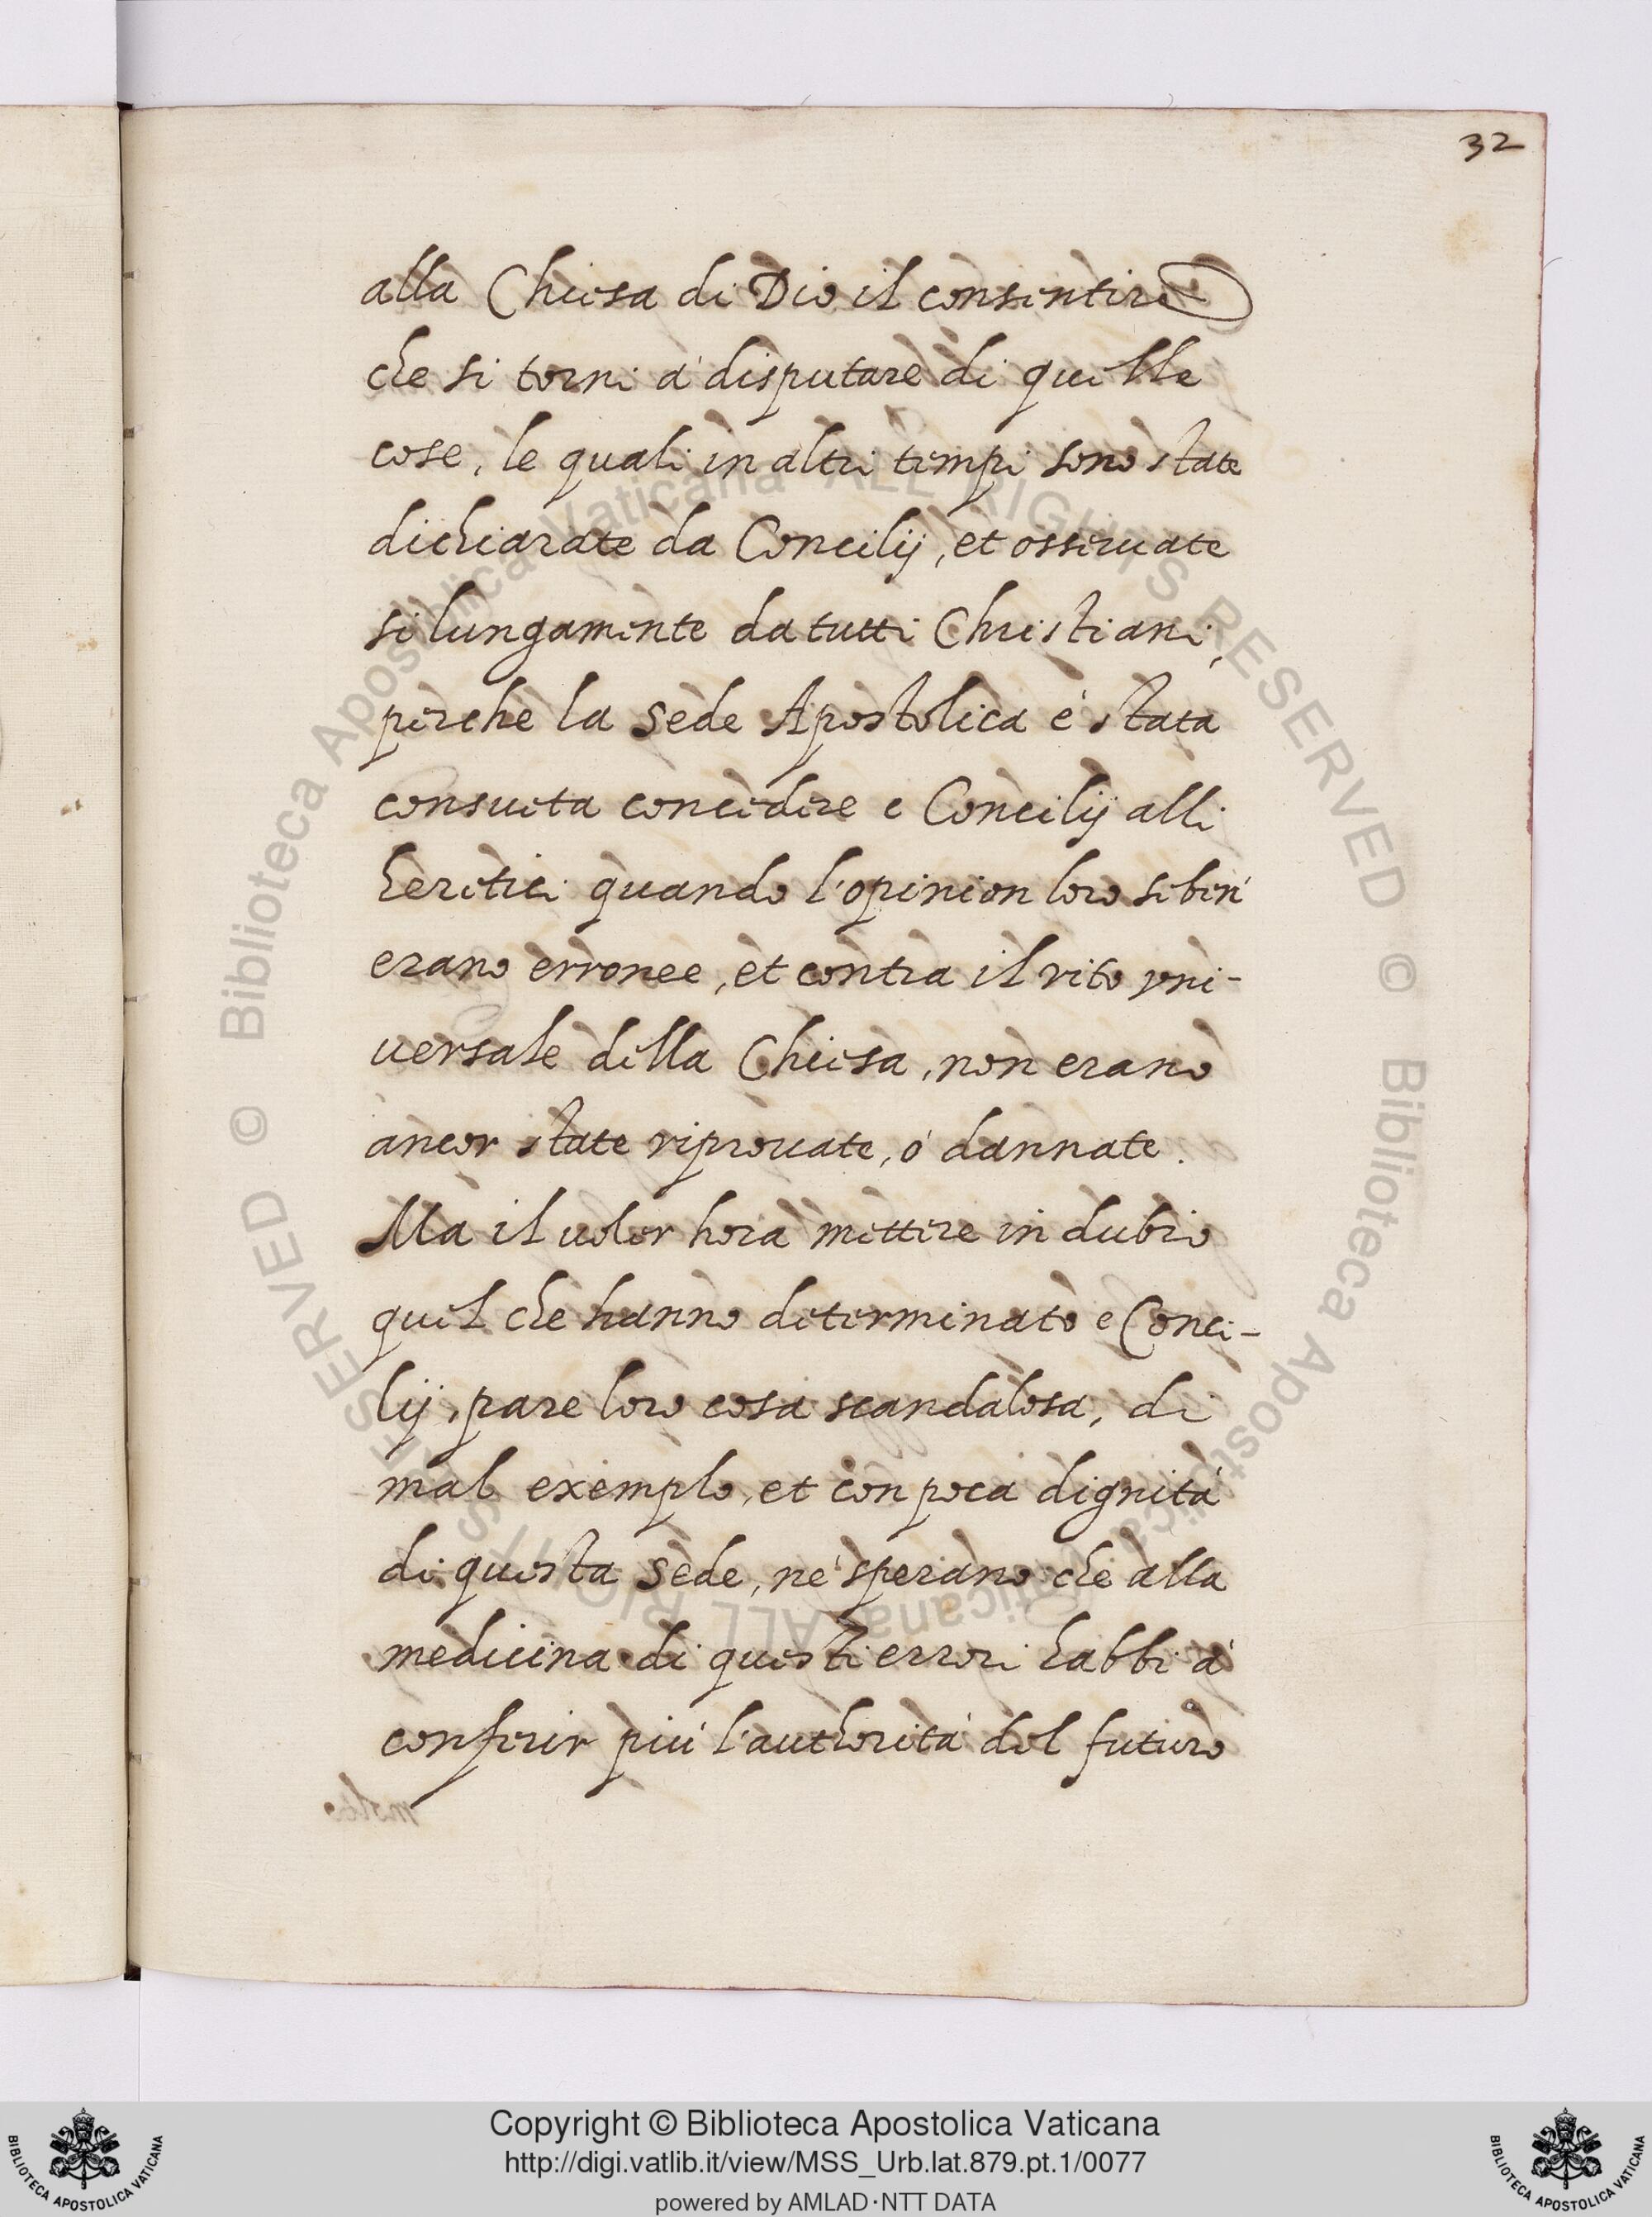 32
alla Chiesa di Dio il consentire
che si torni á disputare di quelle
cose, le quali in altri tempi sono state
dichiarate da Concilij, et osseruate
si lungamente da tutti Christiani,
perche la Sede Apostolica é stata
consueta concedere e Concilij alli
heretici quando l'opinion loro se ben
erano erronee, et contra il rito vni-
uersale della Chiesa, non erano
ancor state riprouate, ó dannate.
Ma il uoler hora mettere in dubio
quel che hanno determinato e Conci-
lij, pare loro cosa scandalosa, di
mal exemplo, et con poca dignitá
di questa Sede, né sperano che alla
medicina di questi errori habbi á
conferir piú l'authoritá del futuro
© Biblioteca Apostolica Vaticana ALL RIGHTS RESERVED © Biblioteca Apostolica Vaticana ALL RIGHTS RESERVED
Copyright © Biblioteca Apostolica Vaticana
http://digi.vatlib.it/view/MSS_Urb.lat.879.pt.1/0077
powered by AMLAD·NTT DATA
BIBLIOTECA APOSTOLICA VATICANA
BIBLIOTECA APOSTOLICA VATICANA